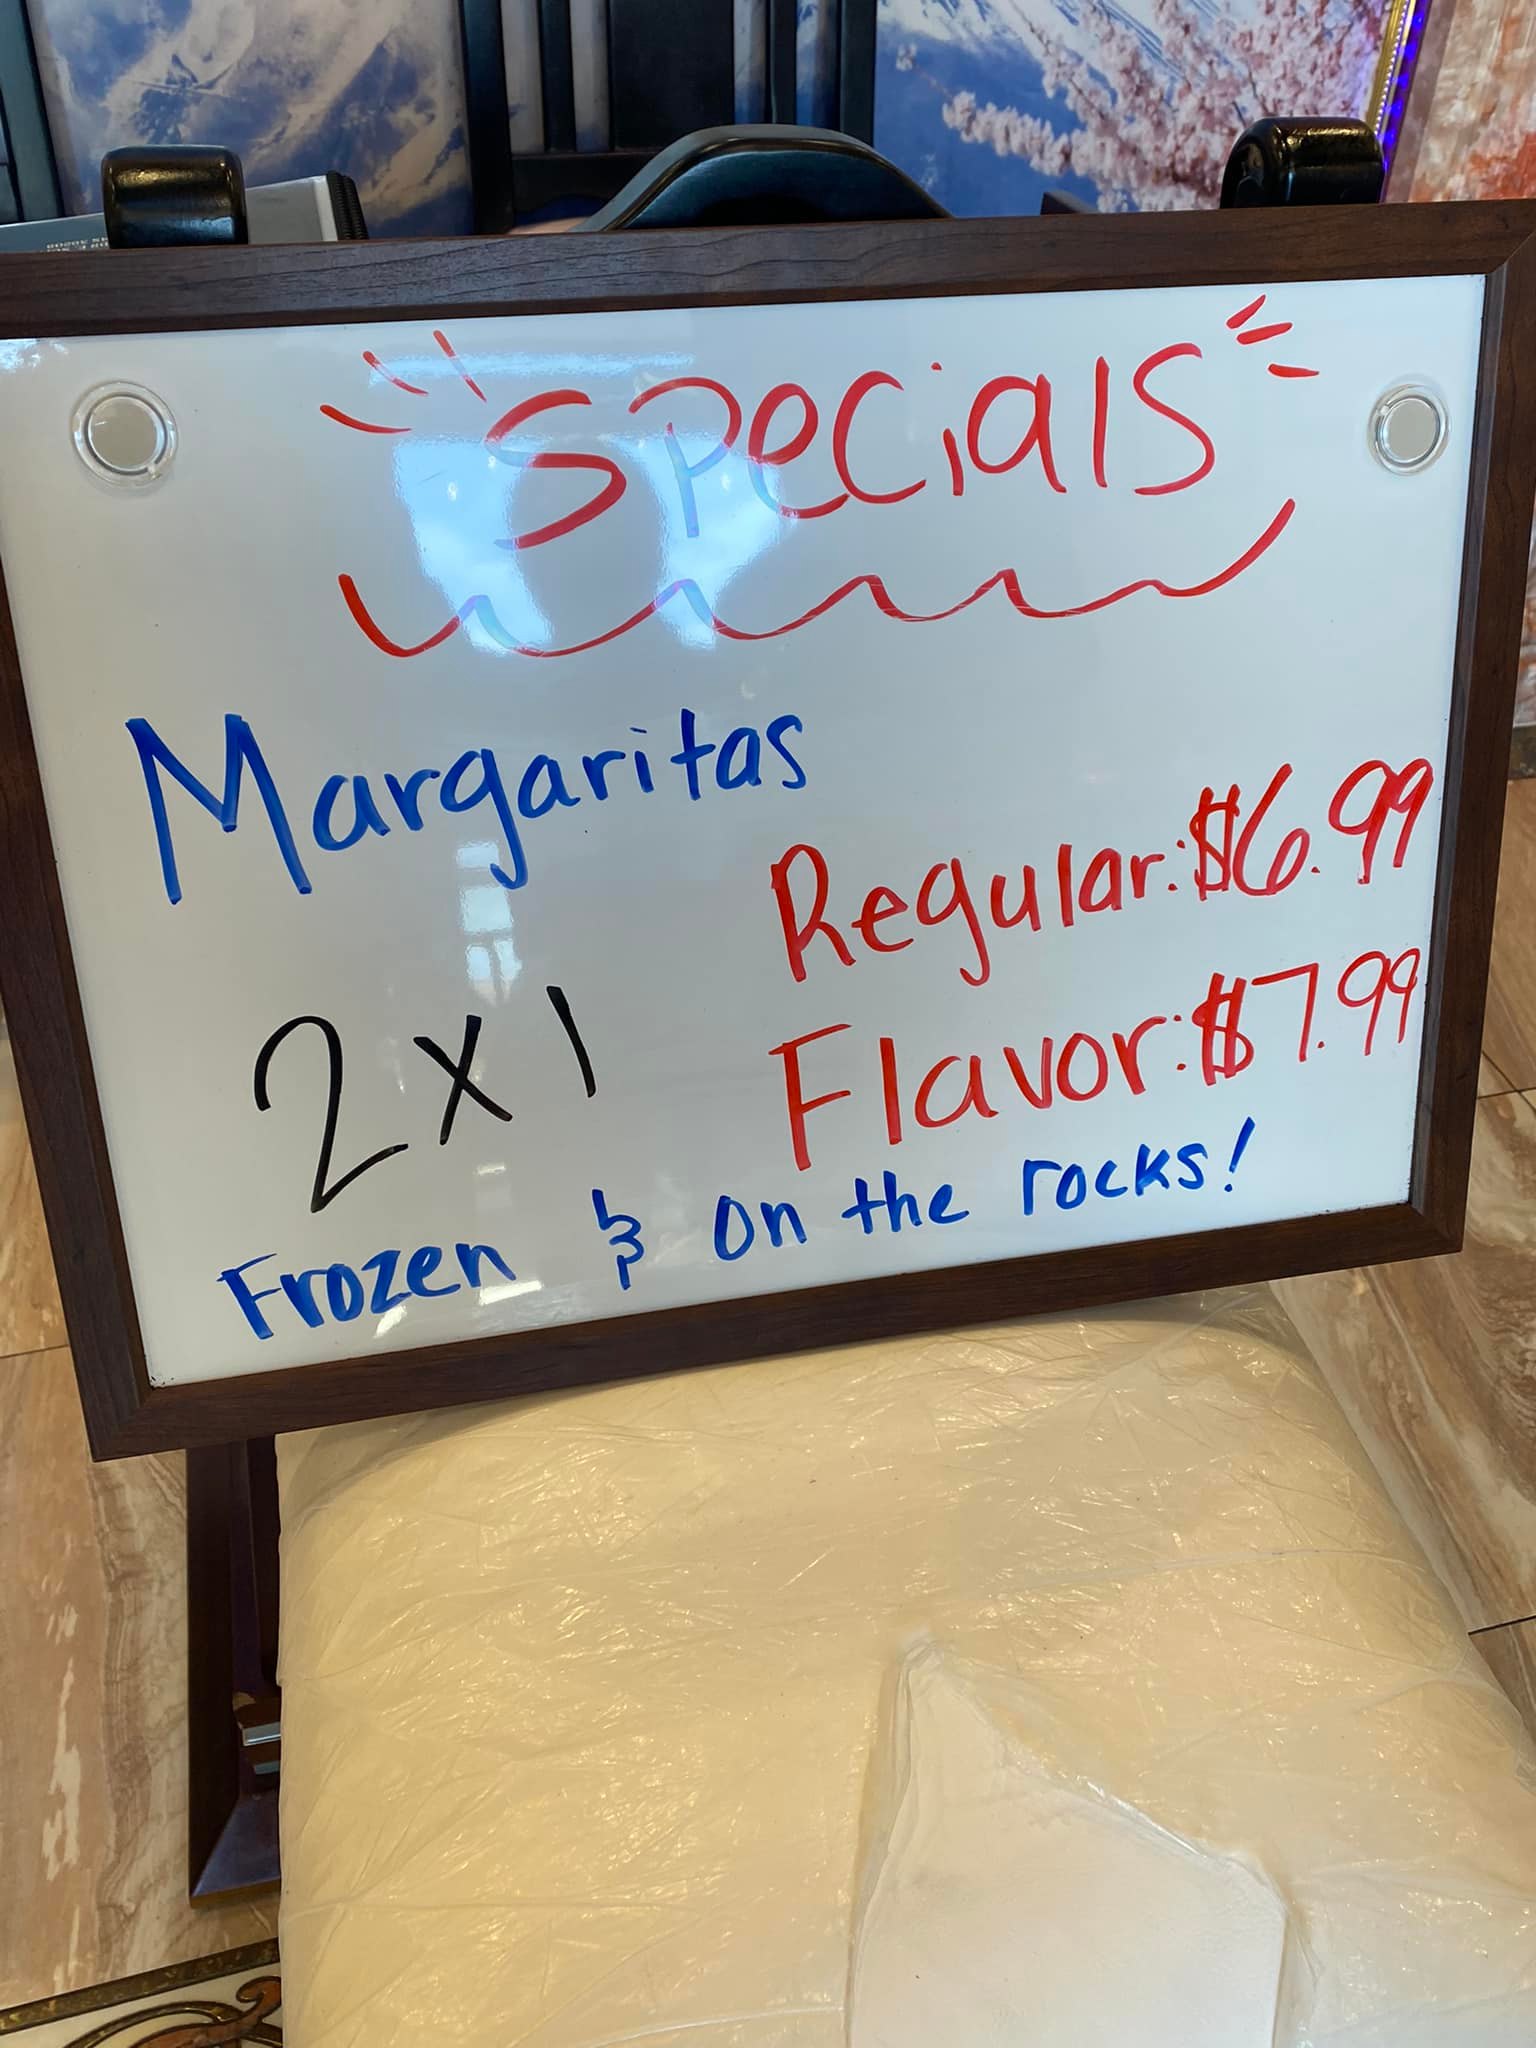 Specials
Margaritas
Regular: $6.99
2 x 1
Flavor: $7.99
Frozen & on the rocks!